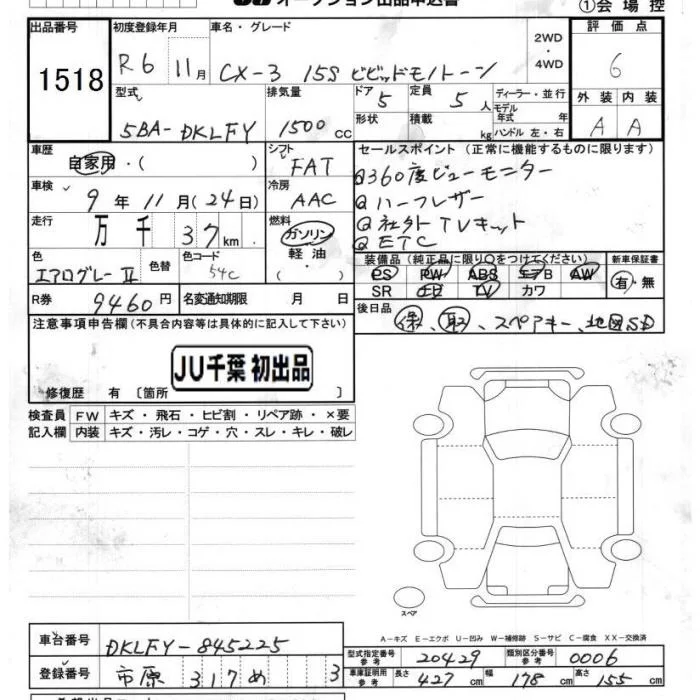 ①会場控
出品番号
1518
初度登録年月
R6 11月
車名・グレード
CX-3 15S ビビッドモノトーン
2WD
・4WD
評価点
6
型式
5BA-DKLFY
排気量
1500cc
ドア
5
形状
定員
5人
積載
kg
ディーラー・並行
モデル年式 年
ハンドル 左・右
外装 内装
A A
車歴
自家用・( )
シフト
FAT
車検
9年11月(24日)
冷房
AAC
走行
万千 37km
燃料
ガソリン
軽油
( )
色
エアログレーⅡ
色替
色コード
54C
R券
9460円
名変通知期限 月 日
セールスポイント(正常に機能するものに限ります)
360度ビューモニター
ハーフレザー
社外TVキット
ETC
装備品(純正品に限り○をつけてください)
PS PW ABS エアB AW
SR ナビ TV カワ
新車保証書
有・無
後日品
保、取、スペアキー、地図SD
注意事項申告欄(不具合内容等は具体的に記入して下さい)
JU千葉 初出品
修復歴 有 〔箇所 〕
検査員記入欄
FW キズ・飛石・ヒビ割・リペア跡・×要
内装 キズ・汚レ・コゲ・穴・スレ・キレ・破レ
スペア
A-キズ E-エクボ U-凹み W-補修跡 S-サビ C-腐食 XX-交換済
車台番号
DKLFY-845225
登録番号
市原 317 め 3
型式指定番号 参考
20429
類別区分番号 参考
0006
車庫証明用 参考
長さ 427cm 幅 178cm 高さ 155cm